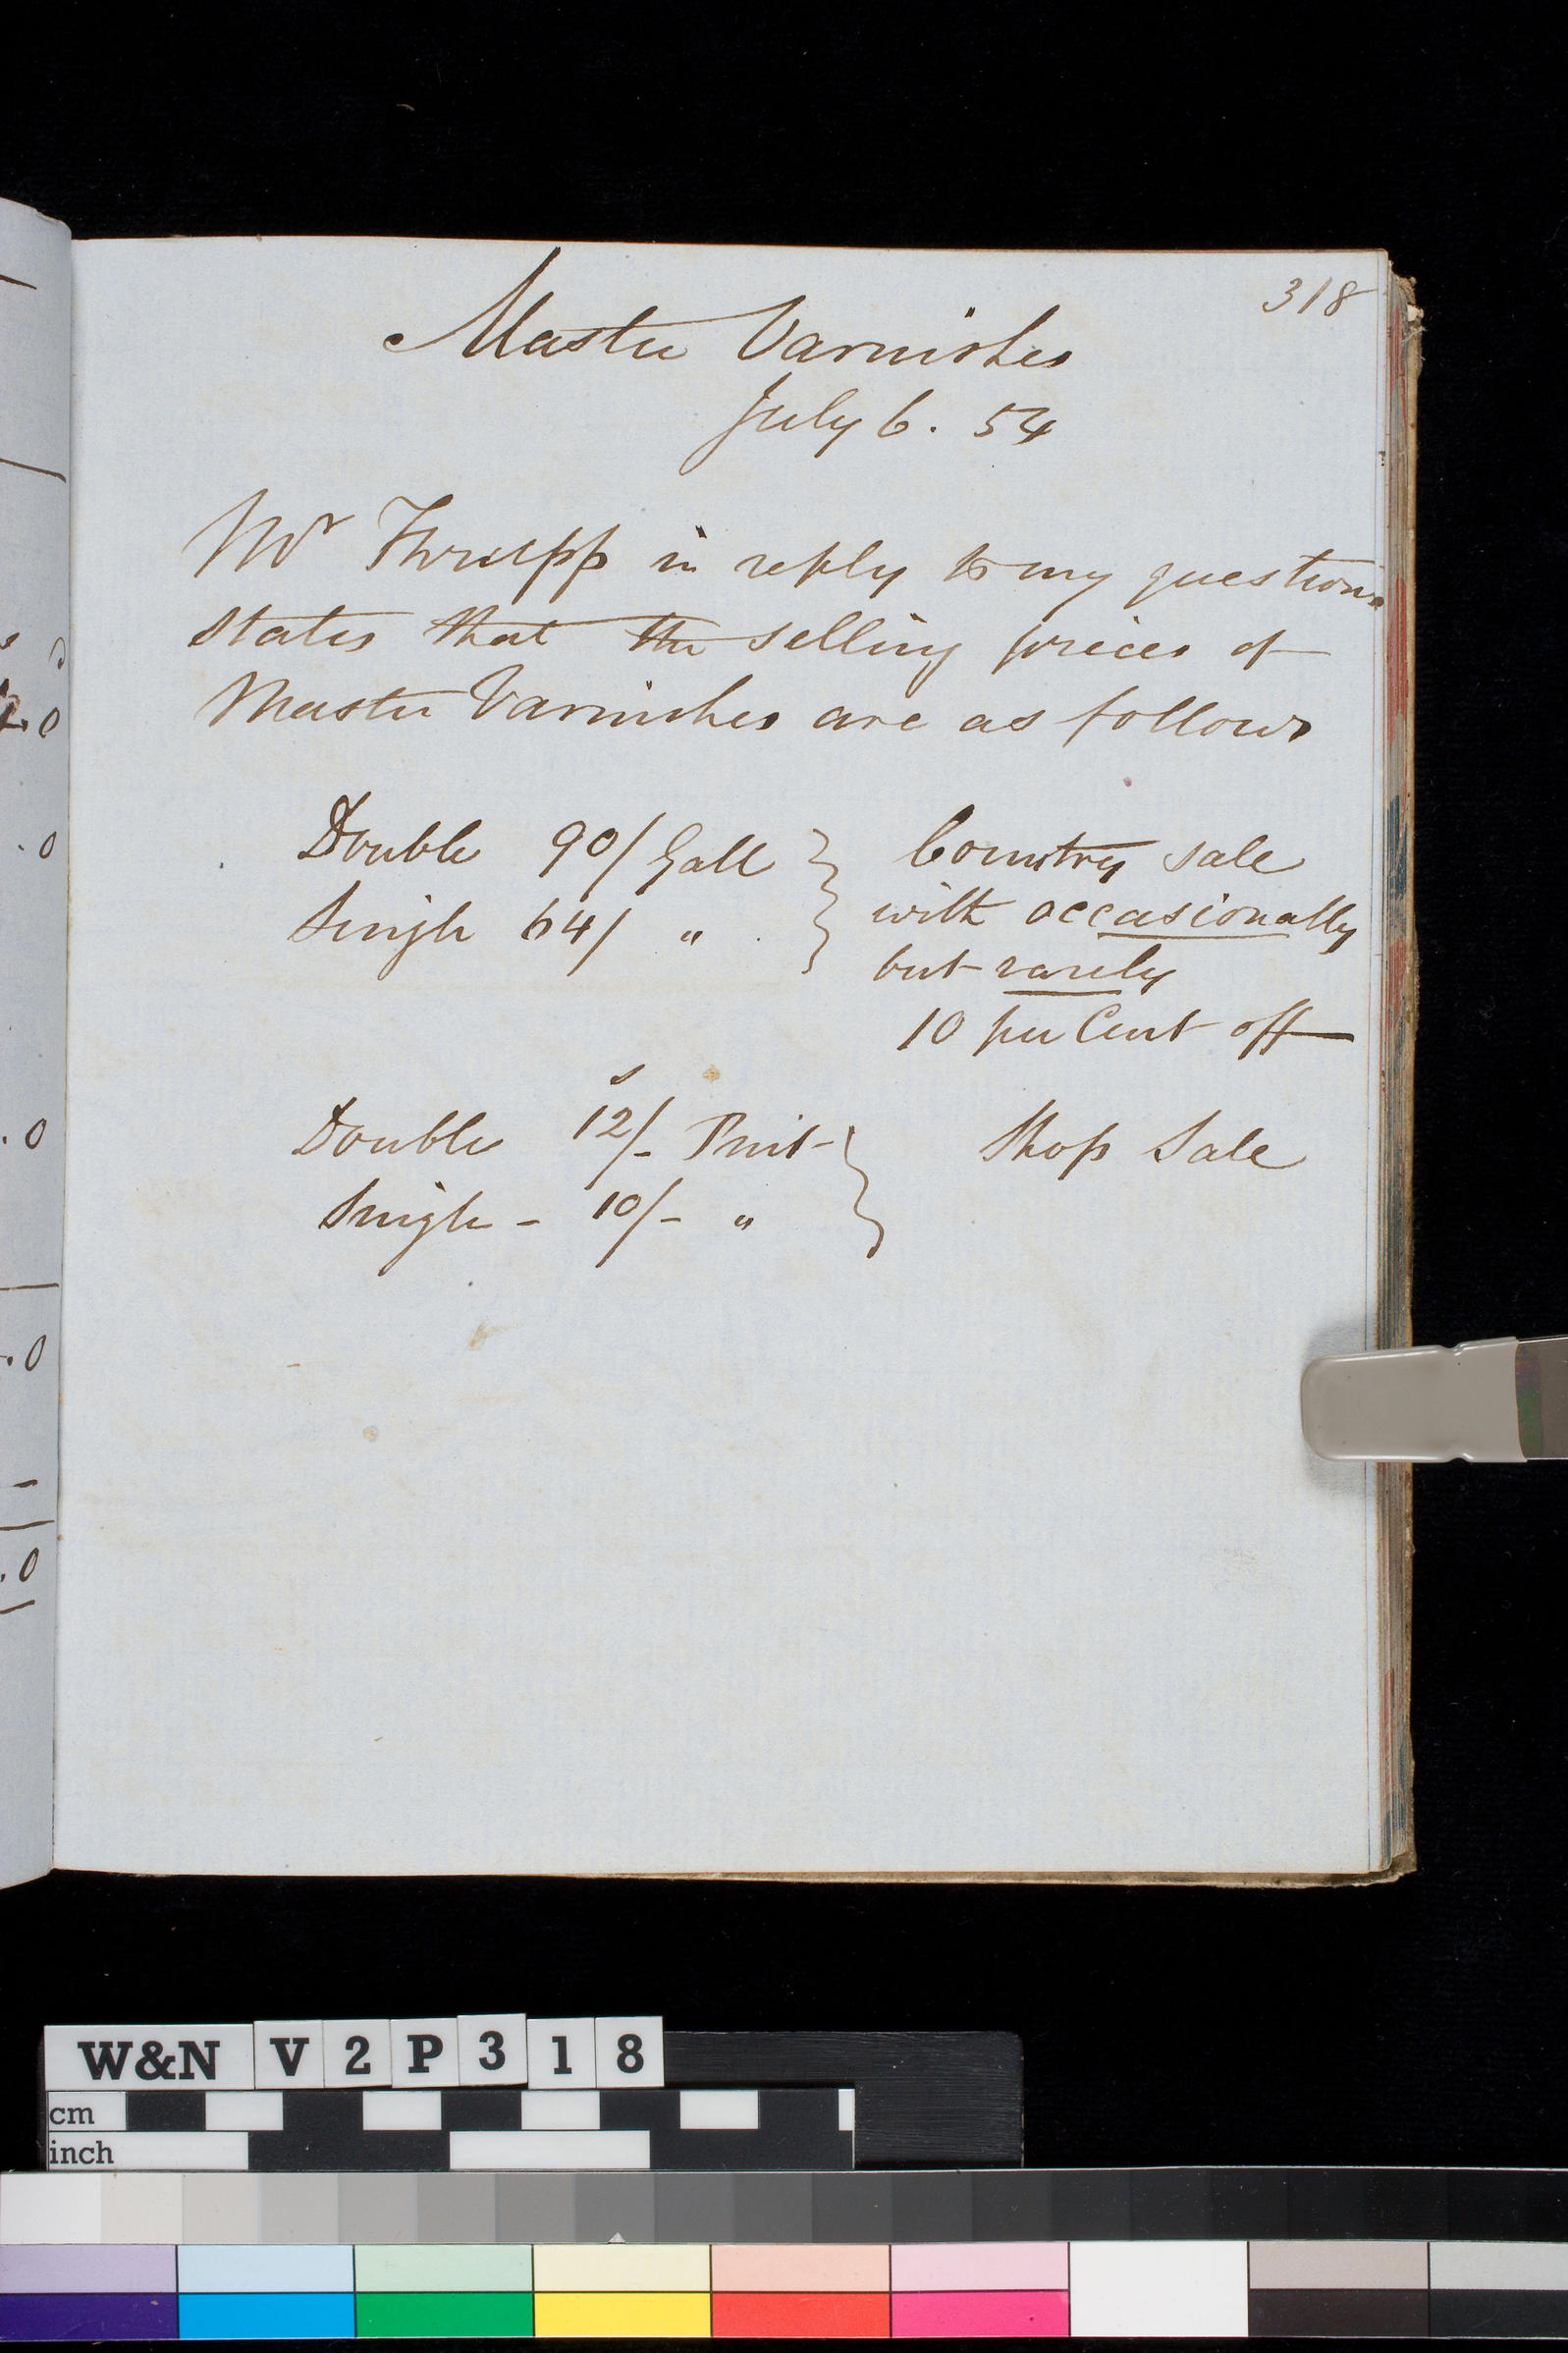 318
Mastic Varnishes
July 6. 54
Mr Thrupp in reply to my questions
states that the selling prices of
Mastic Varnishes are as follows
Double 90/ Gall } Country sale
Single 64/ " } with occasionally
but rarely
10 per Cent off
s
Double 12/- Pint } Shop Sale
Single - 10/- " }
W&N V2P318
cm
inch